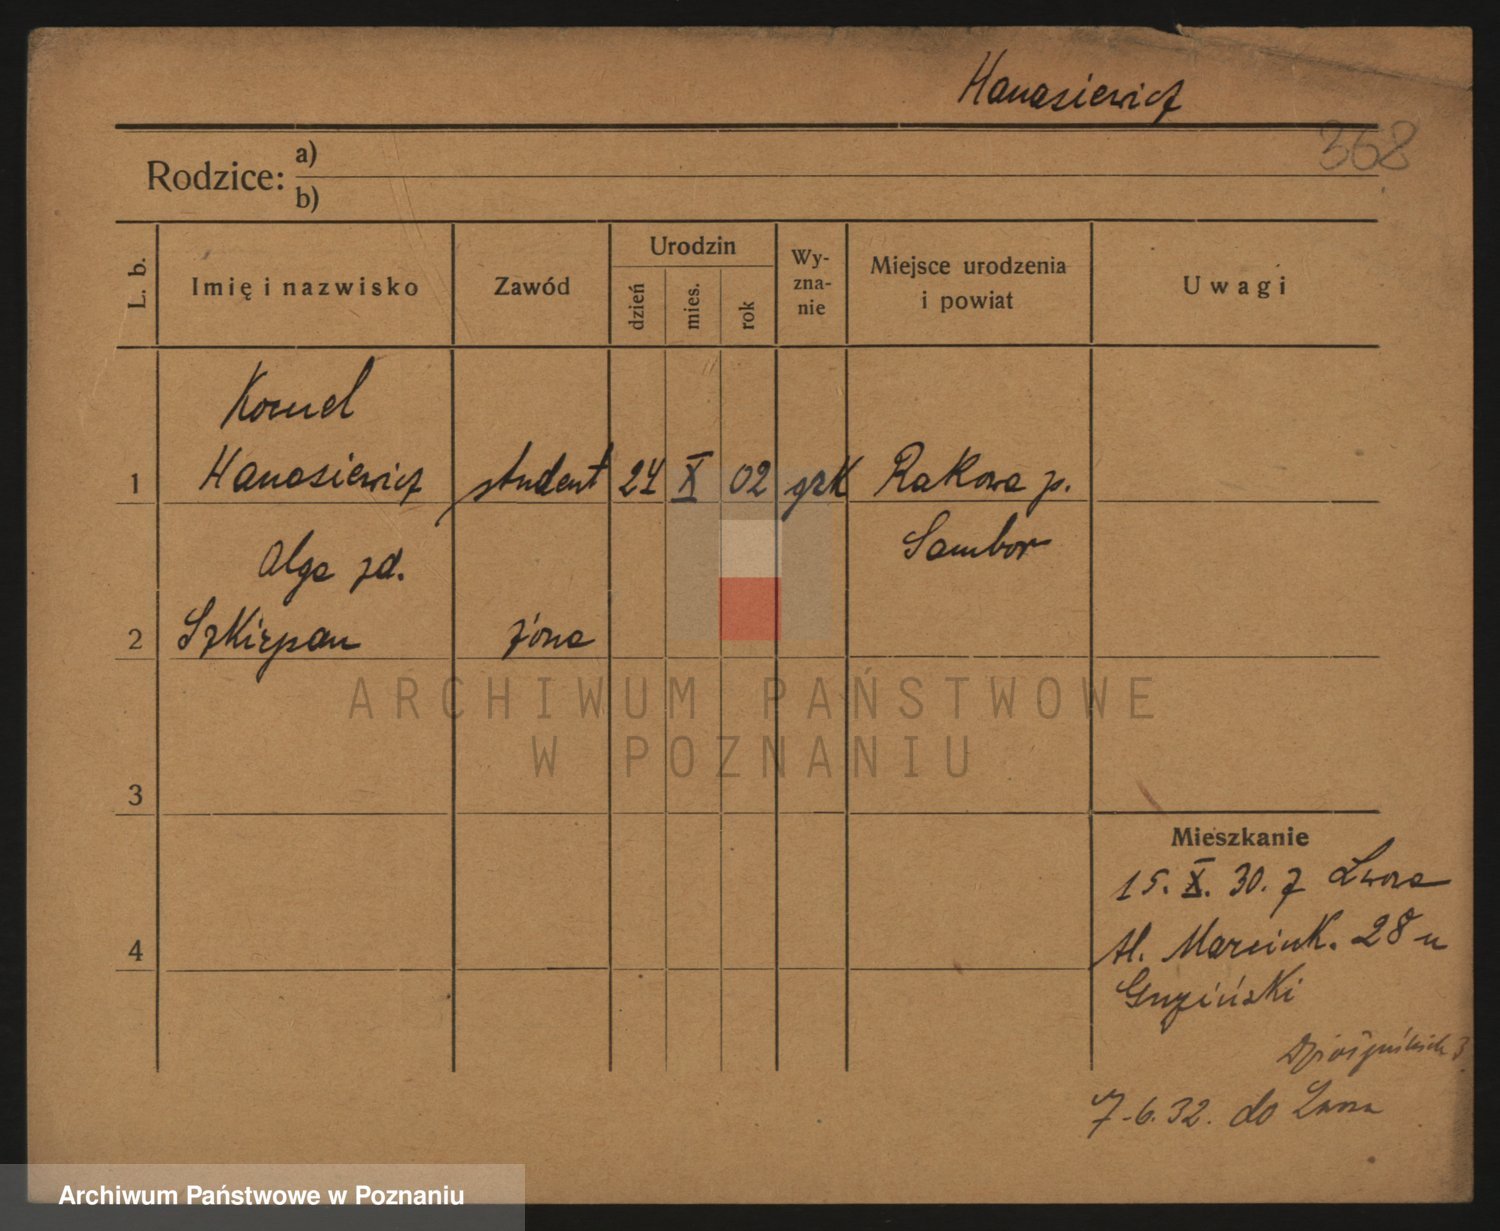 Hanasiewicz
368
Rodzice:
a)
b)
L. b.
Imię i nazwisko
Zawód
Urodzin
dzień
mies.
rok
Wy-
zna-
nie
Miejsce urodzenia
i powiat
Uwagi
Kornel
1 Hanasiewicz student 24 X 02 grk Rakowa p.
Sambor
Olga zd.
2 Szkirpan żona
ARCHIWUM PAŃSTWOWE
W POZNANIU
3
Mieszkanie
15. X. 30. z Lwowa
Al. Marcink. 28 u
4
Guziński
7.6.32. do Lwowa
Archiwum Państwowe w Poznaniu